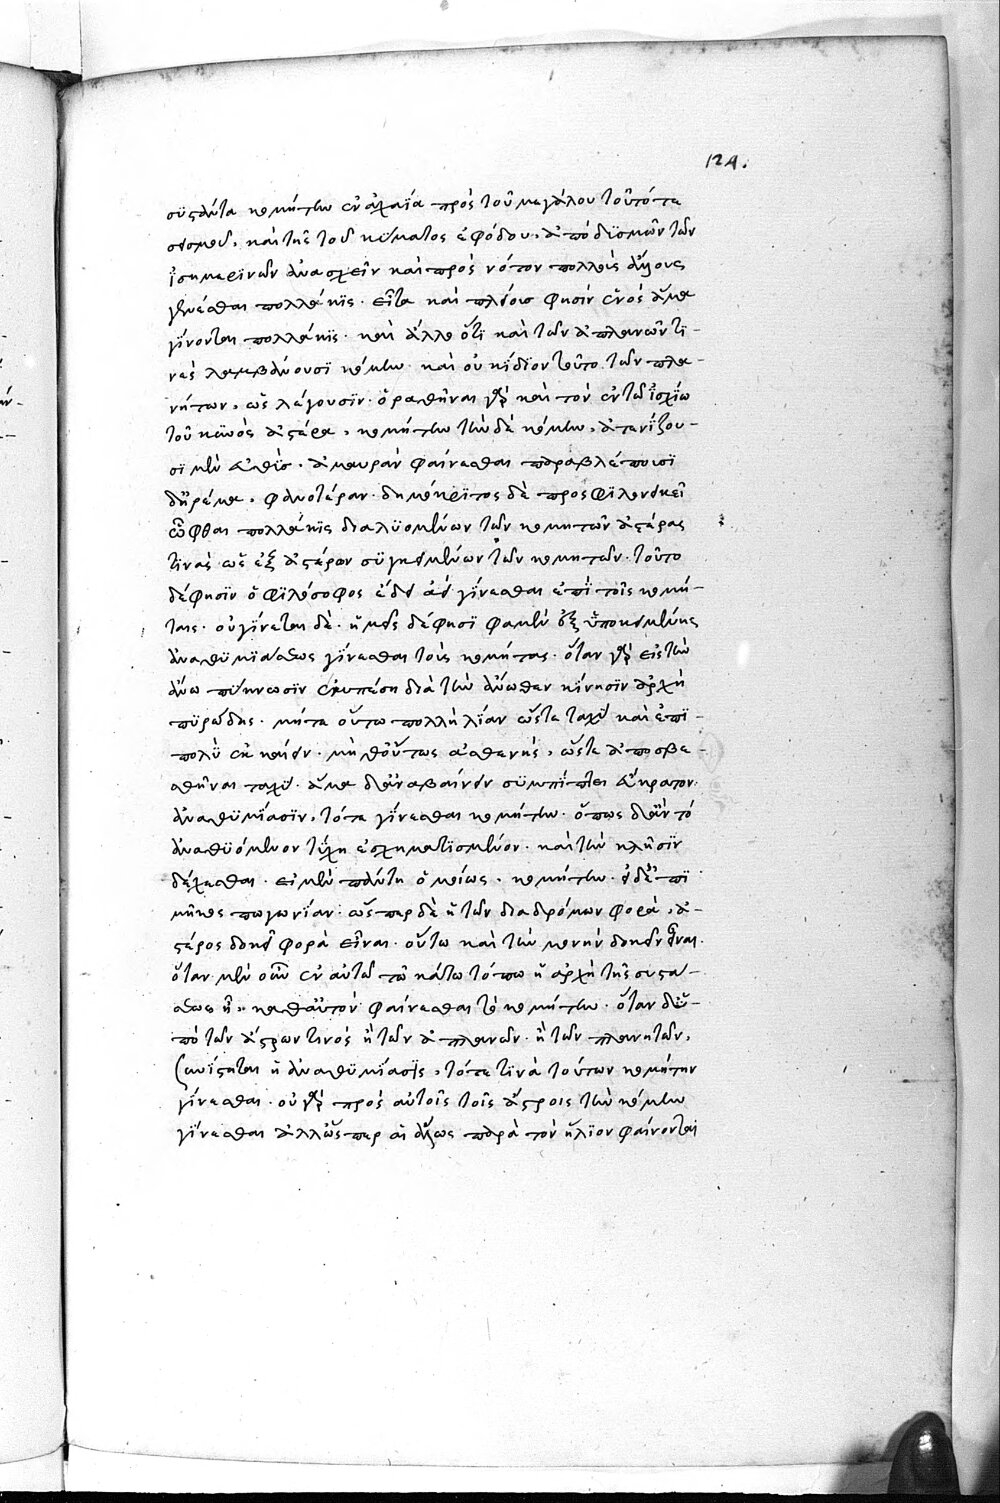 124.
συστάντα κομήτην ἐν ἀχαΐα πρὸς τοῦ μεγάλου τοῦ τότε
σεισμοῦ. καὶ τῆς τοῦ κύματος ἐφόδου. ἀπὸ δϋσμῶν τῶν
ἰσημερινῶν ἀνασχεῖν καὶ πρὸς νότον πολλοὺς
γενέσθαι πολλάκϊς. εἶτα καὶ πλείους φησὶν ἑνὸς ἅμα
γίνονται πολλάκϊς. καὶ ἄλλο ὅτι καὶ τῶν ἀπλανῶν τι-
νὲς λαμβάνουσϊ κόμην. καὶ οὐκ ἴδϊον τοῦτο τῶν πλα-
νήτων, ὡς λέγουσϊν. ὁραθῆναι γὰρ καὶ τὸν ἐν τῶ ἰσχίω
τοῦ κϋνὸς ἀστέρα, κομήτην τὴν δὲ κόμην, ἀτενίζου-
σϊ μὲν αὖθις. ἀμαυρὰν φαίνεσθαι παραβλέπουσϊ
δὴρέμα, φανοτέραν. δημόκρϊτος δὲ προσφϊλονεικεῖ
ὦφθαι πολλάκϊς διαλϋομένων τῶν κομητῶν ἀστέρας
τινὰς ὡς ἐξ ἀστέρων συγκειμένων τῶν κομητῶν. τοῦτο
δέ φησϊν ὁ φϊλόσοφος ἔδει ἀεὶ γίνεσθαι ἐπὶ τοῖς κομή-
ταις. οὐ γίνεται δὲ. ἡμεῖς δέ φησϊ φαμὲν ἐξ ὑποκειμένης
ἀναθϋμϊάσεως γίνεσθαι τοὺς κομήτας. ὅταν γὰρ εἰς τὴν
ἄνω πύκνωσϊν ἐκπέση διὰ τὴν ἄνωθεν κίνησϊν ἀρχὴ
πϋρώδης. μήτε οὕτω πολλὴ λίαν ὥστε ταχὺ καὶ ἐπϊ-
πολὺ ἐκκαίειν. μήθ' οὕτως ἀσθενὴς, ὥστε ἀποσβε-
σθῆναι ταχὺ. ἅμα δ' ἀναβαίνειν συμπίπτει εὔκρατον
ἀναθϋμίασϊν, τότε γίνεσθαι κομήτην. ὅπως δ' ἂν τὸ
ἀναθϋόμενον τύχη ἐσχηματϊσμένον. καὶ τὴν κλῆσϊν
δέχεσθαι. εἰ μὲν πάντη ὁμοίως, κομήτην. εἰ δ' ἐπὶ
μῆκος πωγωνίαν. ὥσπερ δὲ ἡ τῶν διαδρόμων φορὰ, ἀ-
στέρος δοκεῖ φορὰ εἶναι. οὕτω καὶ τὴν μονὴν δοκεῖν εἶναι.
ὅταν μὲν οὖν ἐν αὐτῶ τῶ κάτω τόπω ἡ ἀρχὴ τῆς συστά-
σεως ἦ, καθ' αὑτὸν φαίνεσθαι τὸ κομήτην. ὅταν δ' ὑ-
πὸ τῶν ἄστρων τινὸς ἢ τῶν ἀπλανῶν. ἢ τῶν πλανητῶν,
συνίστηται ἡ ἀναθϋμίασϊς, τότε τϊνὰ τούτων κομήτην
γίνεσθαι. οὐ γὰρ πρὸς αὐτοῖς τοῖς ἄστροις τὴν κόμην
γίνεσθαι ἀλλ' ὥσπερ αἱ ἅλως παρὰ τὸν ἥλϊον φαίνονται